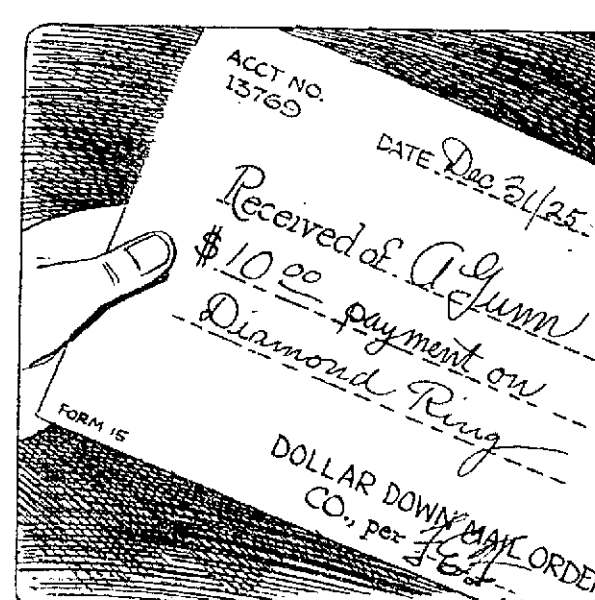 ACCT NO.
13769
DATE Dec 31/25
Received of A Gunn
$10 00 payment on
Diamond Ring
FORM 15
DOLLAR DOWN MAIL ORDER
CO., per